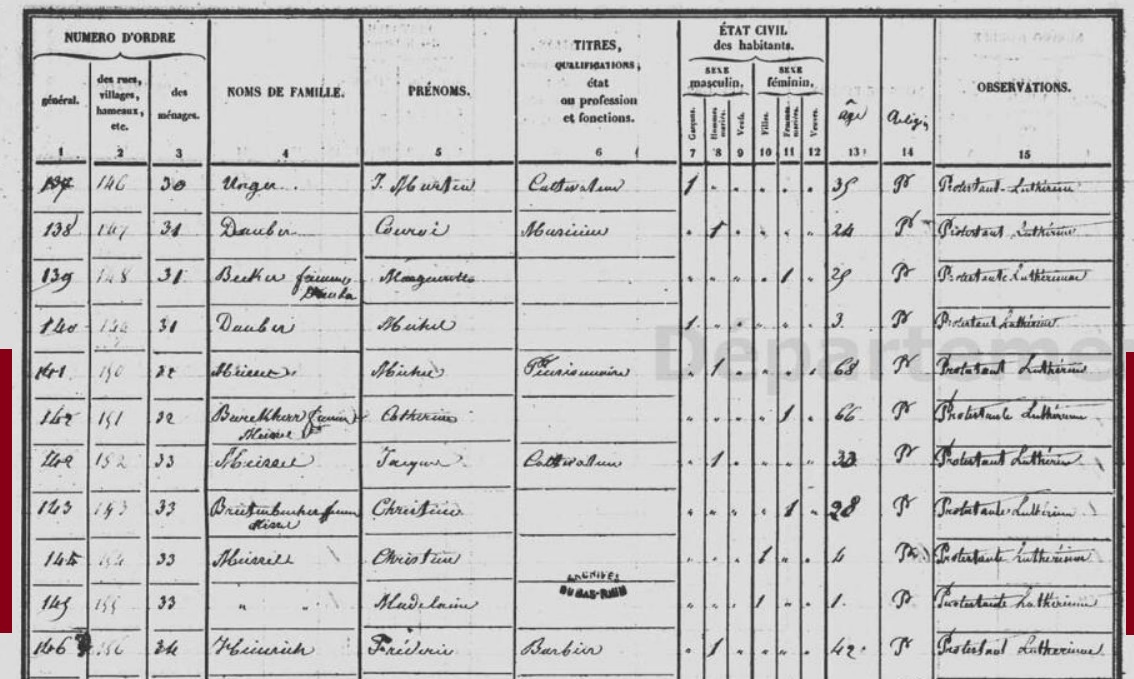 NUMERO D'ORDRE
ÉTAT CIVIL
des habitants.
TITRES,
QUALIFICATIONS,
état
ou profession
et fonctions.
SEXE masculin. SEXE féminin.
général. des rues, villages, hameaux, etc. des ménages. NOMS DE FAMILLE. PRÉNOMS. Garçons. Hommes mariés. Veufs. Filles. Femmes mariées. Veuves. âge Religion OBSERVATIONS.
1 2 3 4 5 6 7 8 9 10 11 12 13 14 15
137 146 30 Unger J. Martin Cultivateur 1 " " " " " 35 Pt Protestant Luthérien
138 147 31 Dauber " 1 " " " " 24 Pt Protestant Luthérien
139 148 31 Becker femme Margueritte " " " " 1 " 29 Pt Protestante Luthérienne
Dauber
140 31 Dauber Michel 1 " " " " " 3 Pt Protestant Luthérien
Départemen
141 150 32 Michel " 1 " " " " 68 Pt Protestant Luthérien
142 151 32 femme Catherine " " " " 1 " 66 Pt Protestante Luthérienne
152 33 Jacques Cultivateur " 1 " " " " 33 Pt Protestant Luthérien
143 153 33 femme Christine " " " " 1 " 28 Pt Protestante Luthérienne
33 Christine " " " 1 " " 4 Pt Protestante Luthérienne
ARCHIVES
DU BAS-RHIN
145 155 33 " " Madelaine " " " 1 " " 1 Pt Protestante Luthérienne
146 156 34 Heinrich Fréderic Barbier " 1 " " " " 42 Pt Protestant Luthérien